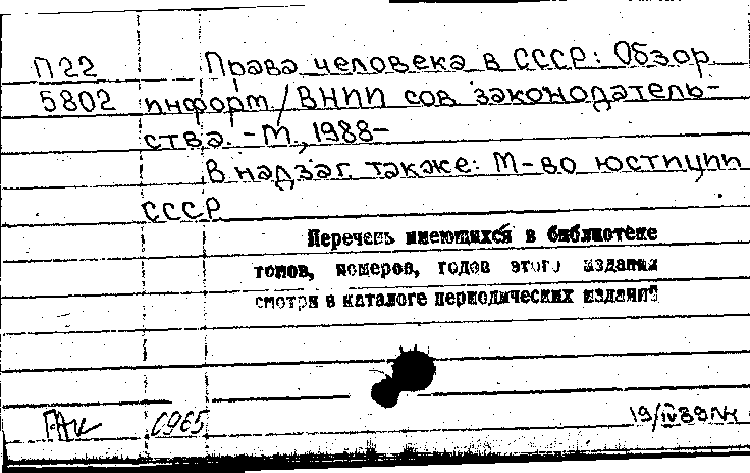 П22 Права человека в СССР: Обзор.
5802 информ. / ВНИИ сов. законодатель-
ства. - М., 1988-
В надзаг. также: М-во юстиции
СССР
Перечень имеющихся в библиотеке
томов, номеров, годов этого издания
смотри в каталоге периодических изданий
С965